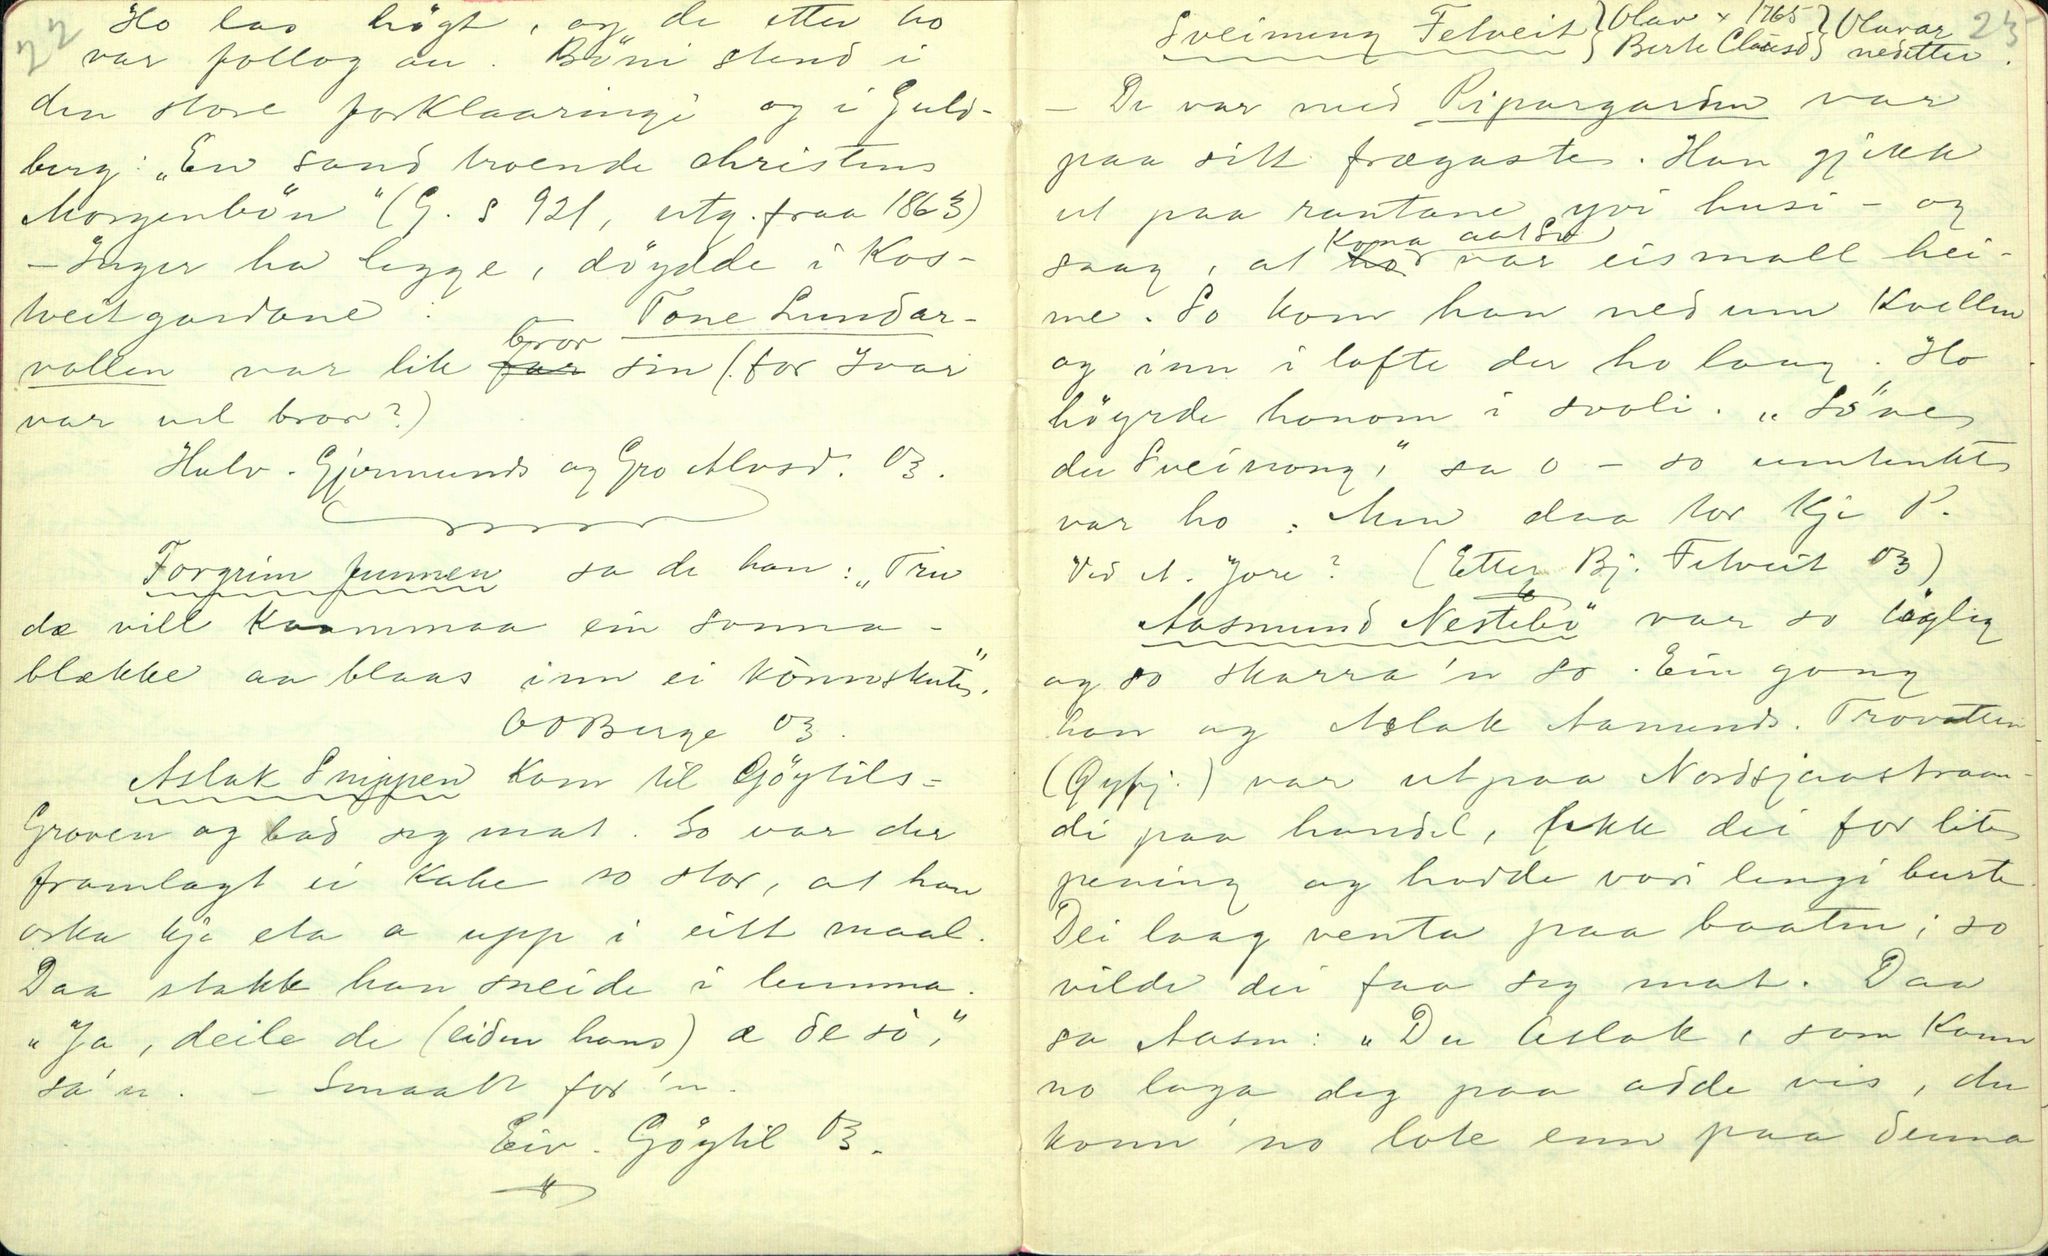 22
Ho las högt, og de etter ho
var follog au. Böni stend i
den store forklaaringi og i Guld-
berg: „En sand troende christens
Morgenbön" (G. s 921, utg. fraa 1863)
- Inger ha legge, döydde i Kos-
tveitgardane. - Tone Lundar-
vollen var lik far bror sin (for Ivar
var vel bror?)
Halv. Gjermunds og Gro Alvsd. 03.
Torgrim Junnen sa de han: „Tru
dæ vill kaammaa ein sonna-
blække aa blaas inn ei könnskute."
O O Berge 03.
Aslak Snippen kom til Göytils-
Groven og bad seg mat. So var der
framlagt ei kake so stor, at han
orka kje eta a upp i eitt maal.
Daa stakk han sneide i lumma.
„Ja, deile de (eiden hans) æ de sö,"
sa'n. - Smaatt for'n.
Eiv. Göytil 03.
23
Sveinung Fetveit } Olav x 1765 } Olavar
Berte Clausd } nedetter.
- De var med Ripargarden var
paa sitt frægaste. Han gjekk
ut paa rantane yvi husi - og
saag, at ho Kona aat So var eismall hei-
me. So kom han ned um kvellen
og inn i lofte der ho laag. Ho
höyrde honom i svoli. „Söve
du Sveinong," sa o - so umtenkt
var ho. Men daa tor kje R.
Ved A. Jore? (Etter Bj. Fetveit 03)
Aasmund Nestebö var so löglig
og so skarra'n so. Ein gong
han og Aslak Aamunds. Trovatten
(Gyfj.) var ut paa Nordsjaastraan-
di paa handel, fekk dei for lite
pening og hadde vori lengi burte.
Dei laag venta paa baaten; so
vilde dei faa seg mat. Daa
sa Aasm: „Du Aslak, som kann
no laga deg paa adde vis, du
konn' no lote enn paa denna